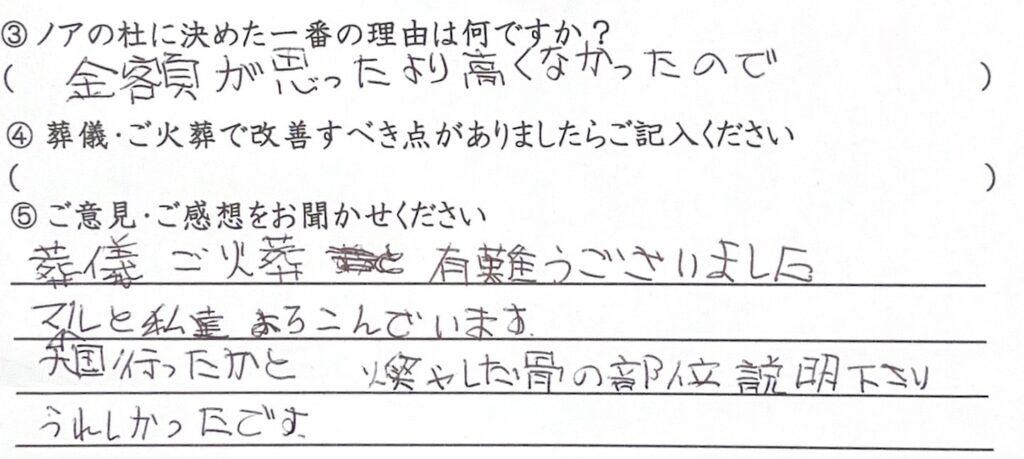 ③ ノアの杜に決めた一番の理由は何ですか？
( 金額が思ったより高くなかったので )
④ 葬儀・ご火葬で改善すべき点がありましたらご記入ください
( )
⑤ ご意見・ご感想をお聞かせください
葬儀 ご火葬 有難うございました
マルと私達 よろこんでいます
天国行ったかと 燃やした骨の部位説明下さり
うれしかったです。